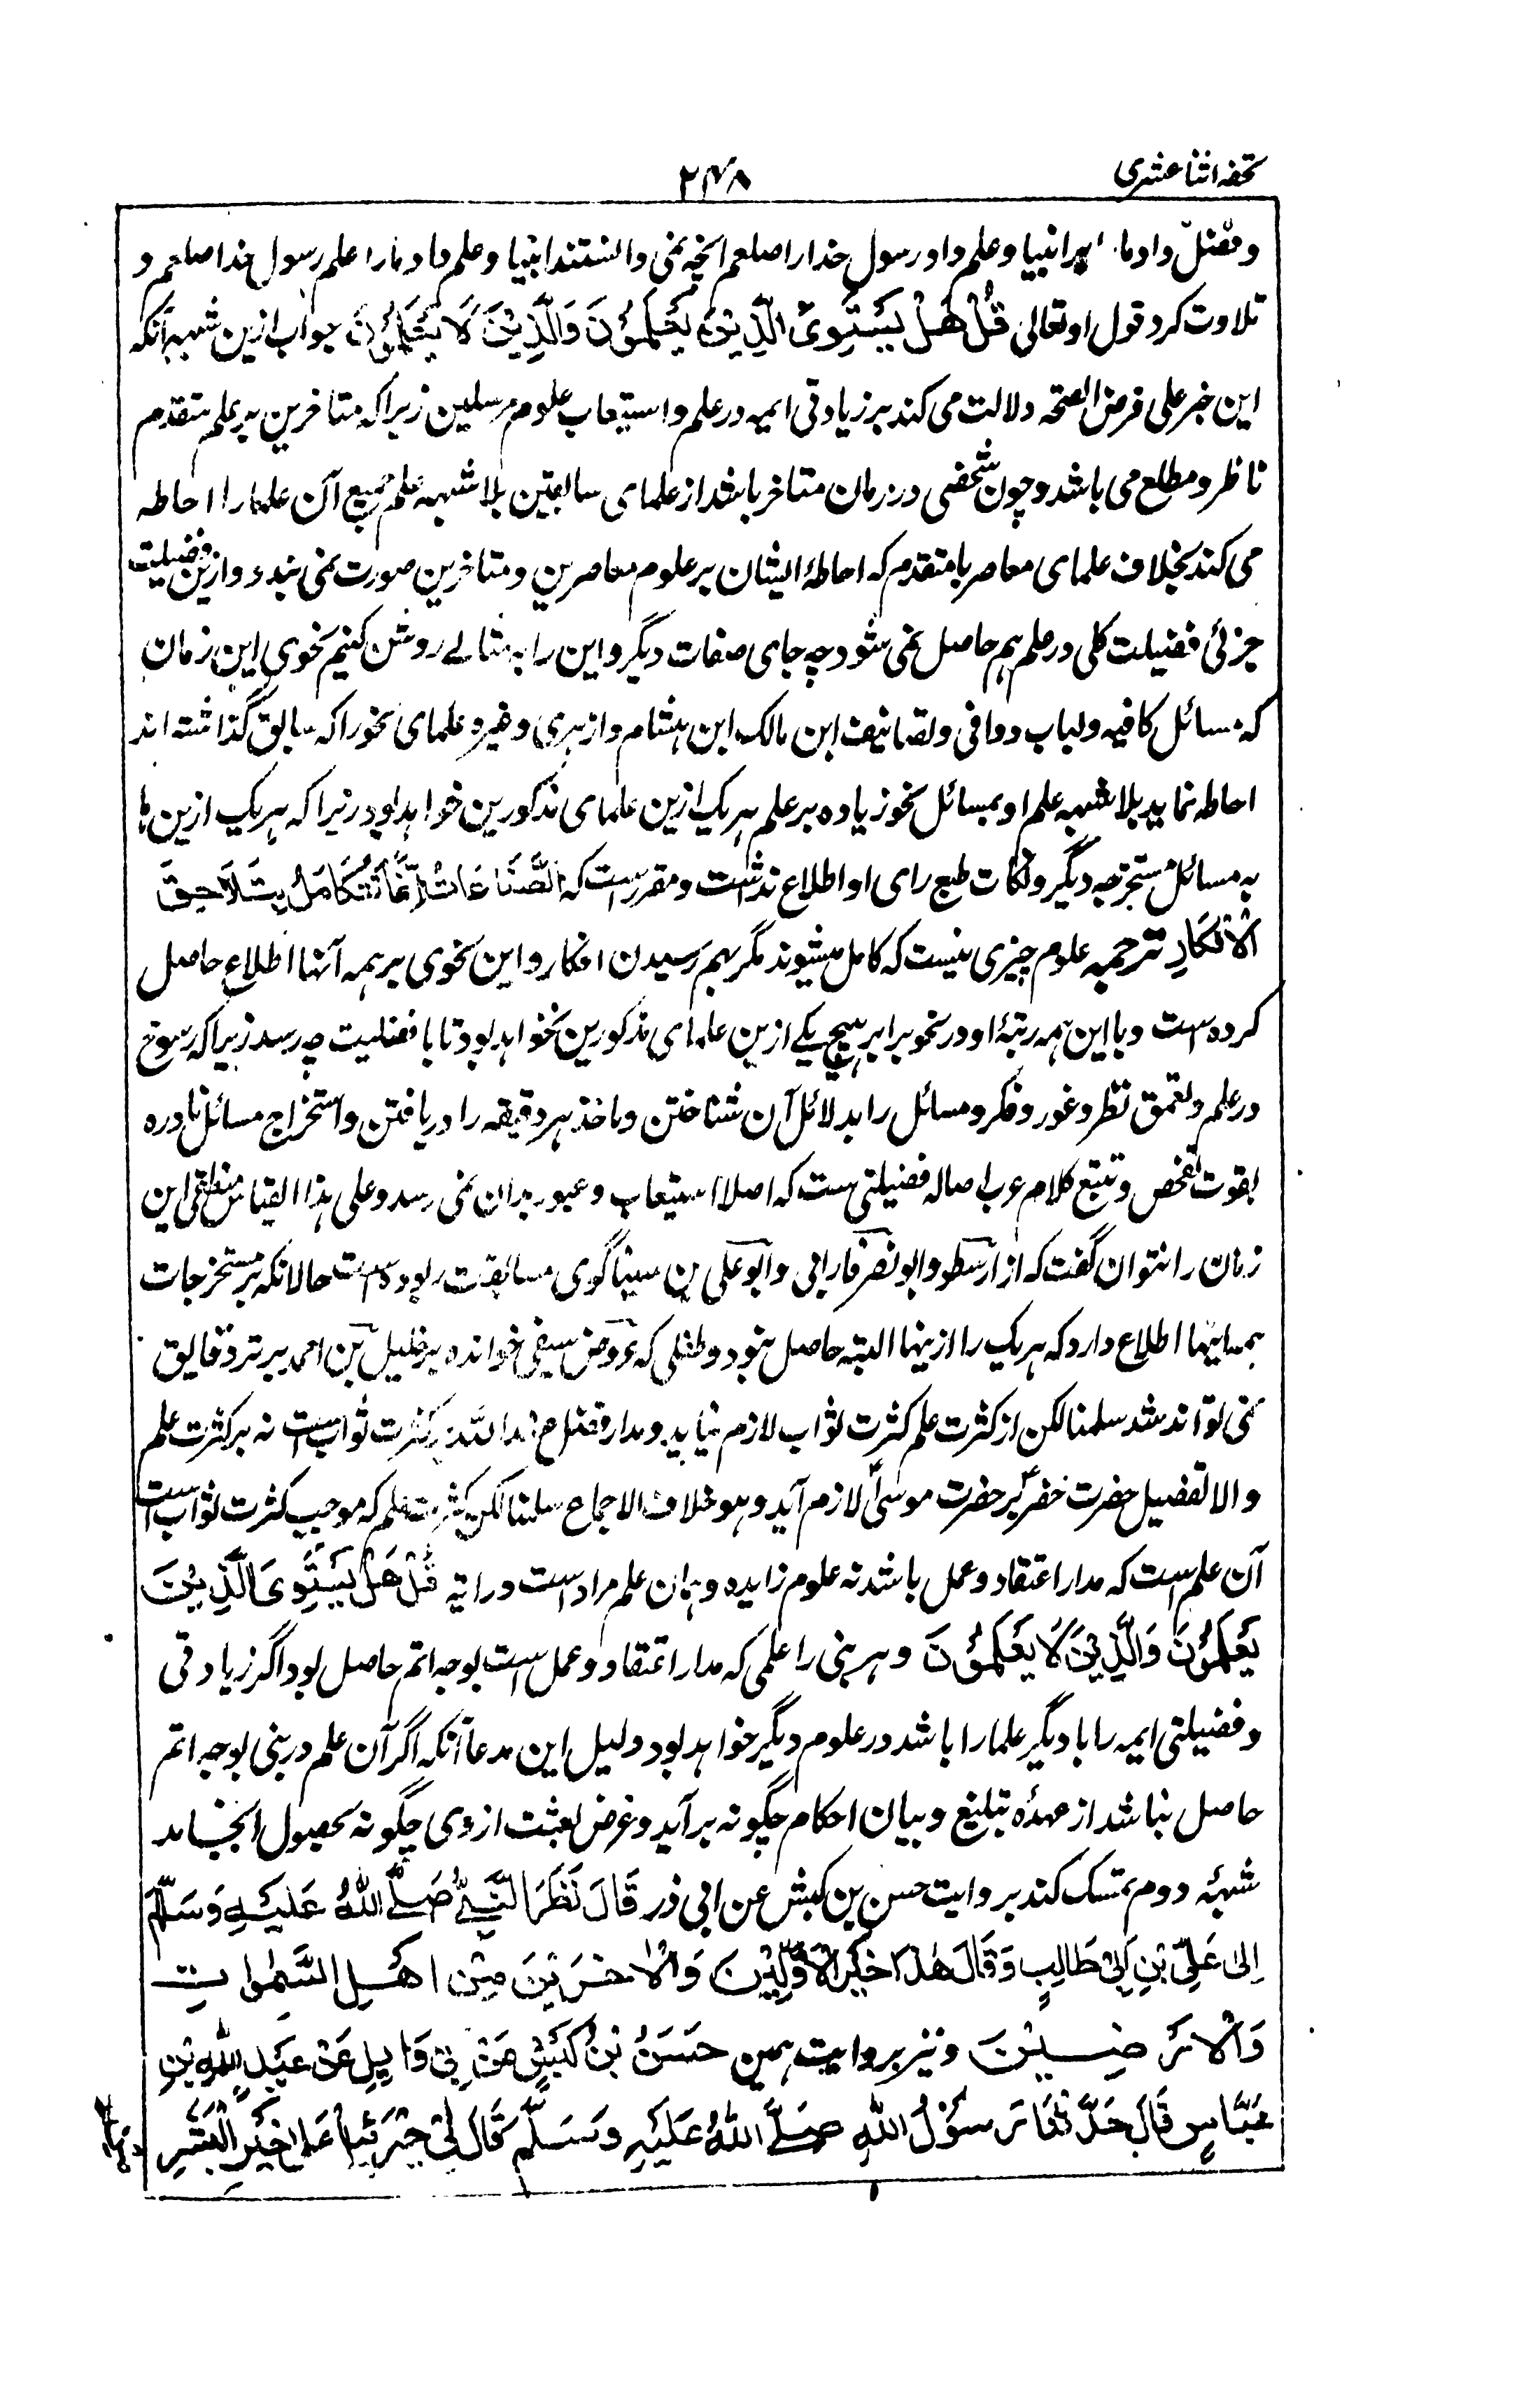 تحفه اثنا عشری
۲۴۸
و فضل داد مارا برانبیا و علم داد رسول خدا را صلعم آنچه نمی دانستند انبیا و علم داد مارا علم رسول خدا صلعم و
تلاوت کرد قول او تعالی قُلْ هَلْ يَسْتَوِى الَّذِيْنَ يَعْلَمُوْنَ وَالَّذِيْنَ لَا يَعْلَمُوْنَ جواب ازین شبهه آنکه
این خبر علی فرض الصحه دلالت می کند بر زیادتی ایمه در علم و استیعاب علوم مرسلین زیرا که متاخرین بر علم متقدم
ناظر و مطلع می باشد و چون شخصی در زمان متاخر باشد از علمای سابقین بلا شبهه علم جمیع آن علما را احاطه
می کند بخلاف علمای معاصر یا متقدم که احاطۀ ایشان بر علوم معاصرین و متاخرین صورت نمی بندد و ازین فضیلت
جزئی فضیلت کلی در علم هم حاصل نمی شود چه جای صفات دیگر و این را به مثالے روشن کنیم نحوی این زمان
که مسائل کافیه و لباب و وافی و تصانیف ابن مالک ابن هشام و ازهری و غیره علمای نحو را که سابق گذاشته اند
احاطه نماید بلا شبهه علم او بمسائل نحو زیاده بر علم هر یک ازین علمای مذکورین خواهد بود زیرا که هر یک ازین ها
به مسائل مستخرجه دیگر و نکات طبع رای او اطلاع نداشت و مقرر است که الصَّنَاعَاتُ اِنَّمَا تَتَكَامَلُ بِتَلَاحِقِ
الْاَفْكَارِ ترجمه علوم چیزی نیست که کامل میشوند مگر بهم رسیدن افکار و این نحوی بر همه آنها اطلاع حاصل
کرده است و با این همه رتبۀ او در نحو برابر هیچ یکے ازین علمای مذکورین نخواهد بود تا با فضلیت چه رسد زیرا که رسوخ
در علم و تعمق نظر و غور و فکر و مسائل را بدلائل آن شناختن و ماخذ هر دقیقه را دریافتن و استخراج مسائل نادره
بقوت تفحص و تتبع کلام عرب اصاله فضیلتی ست که اصلا استیعاب و عبور بدان نمی رسد و علی هذا القیاس منطقی این
زمان را نتوان گفت که از ارسطو و ابو نصر فارابی و ابو علی بن سینا گوی مسابقت ربوده است حالانکه بر مستخرجات
همه اینها اطلاع دارد که هر یک را ازینها البته حاصل نبود و طفلی که عروض سیفی خوانده بر خلیل بن احمد برتر و فایق
نمی تواند شد سلمنا لکن از کثرت علم کثرت ثواب لازم نیاید و مدار فضل عند اللّه بر کثرت ثواب است نه بر کثرت علم
و الا تفضیل حضرت خضرؑ بر حضرت موسیؑ لازم آید و هو خلاف الاجماع سلمنا لکن کثرت علم که موجب کثرت ثواب است
آن علم است که مدار اعتقاد و عمل باشد نه علوم زایده و همان علم مراد است در ایه قُلْ هَلْ يَسْتَوِى الَّذِيْنَ
يَعْلَمُوْنَ وَالَّذِيْنَ لَا يَعْلَمُوْنَ و هر نبی را علمی که مدار اعتقاد و عمل است بوجه اتم حاصل بود اگر زیادتی
و فضیلتی ایمه را با دیگر علما را باشد در علوم دیگر خواهد بود دلیل این مدعا آنکه اگر آن علم در نبی بوجه اتم
حاصل نباشد از عهدۀ تبلیغ و بیان احکام چگونه بر آید و غرض بعثت از وی چگونه بحصول انجامد
شبهۀ دوم تمسک کند بروایت حسن بن کبش عن ابی ذر قَالَ نَظَرَ النَّبِىُّ صَلَّے اللّٰهُ عَلَيْهِ وَسَلَّمَ
اِلٰى عَلِىِّ بْنِ اَبِىْ طَالِبٍ وَقَالَ هٰذَا خَيْرُ الْاَوَّلِيْنَ وَالْاٰخِرِيْنَ مِنْ اَهْلِ السَّمٰوَاتِ
وَالْاَرَضِيْنَ و نیز بروایت همین حَسَنُ بْنُ كَبَشٍ عَنْ اَبِىْ وَايِلٍ عَنْ عَبْدِ اللّٰهِ بْنِ
عَبَّاسٍ قَالَ حَدَّثَنَا رَسُوْلُ اللّٰهِ صَلَّے اللّٰهُ عَلَيْهِ وَسَلَّمَ قَالَ لِىْ جِبْرَئِيْلُ عَلِىٌّ خَيْرُ الْبَشَرِ